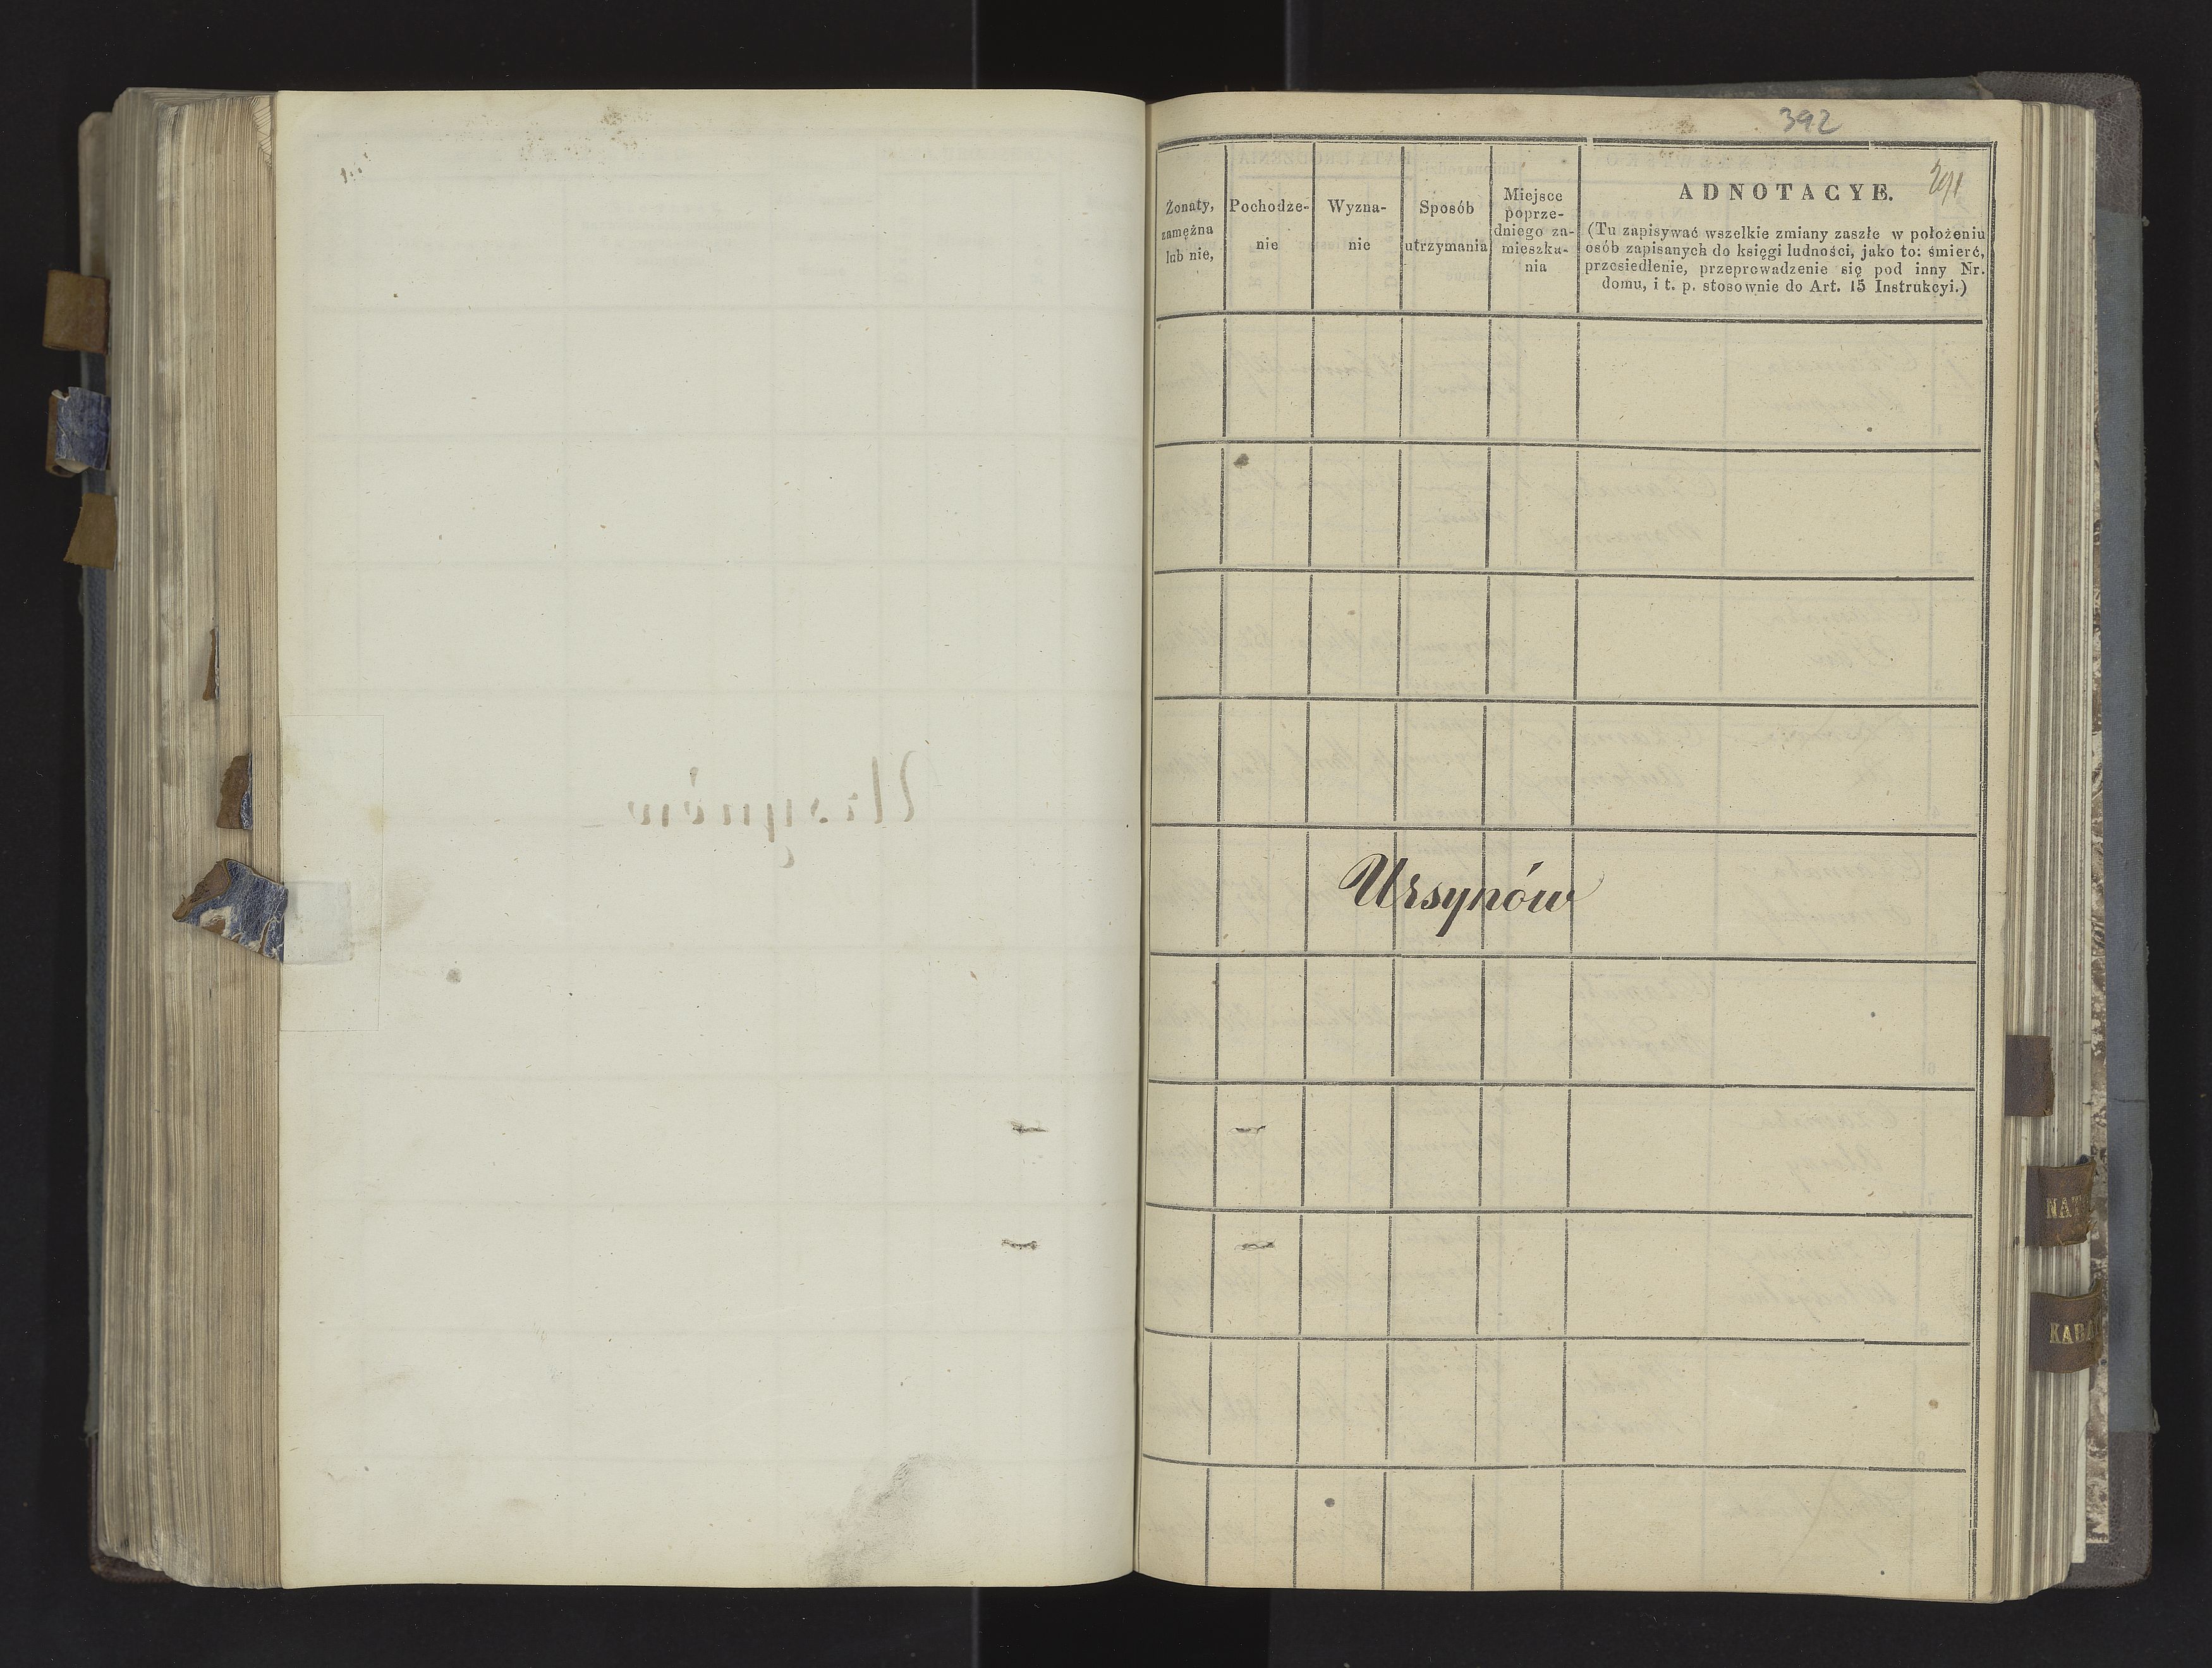 392
291
Żonaty,
zamężna
lub nie,
Pochodze-
nie
Wyzna-
nie
Sposób
utrzymania
Miejsce
poprze-
dniego za-
mieszka-
nia
ADNOTACYE.
(Tu zapisywać wszelkie zmiany zaszłe w położeniu
osób zapisanych do księgi ludności, jako to: śmierć,
przesiedlenie, przeprowadzenie się pod inny Nr.
domu, i t. p. stosownie do Art. 15 Instrukcyi.)
Ursynów